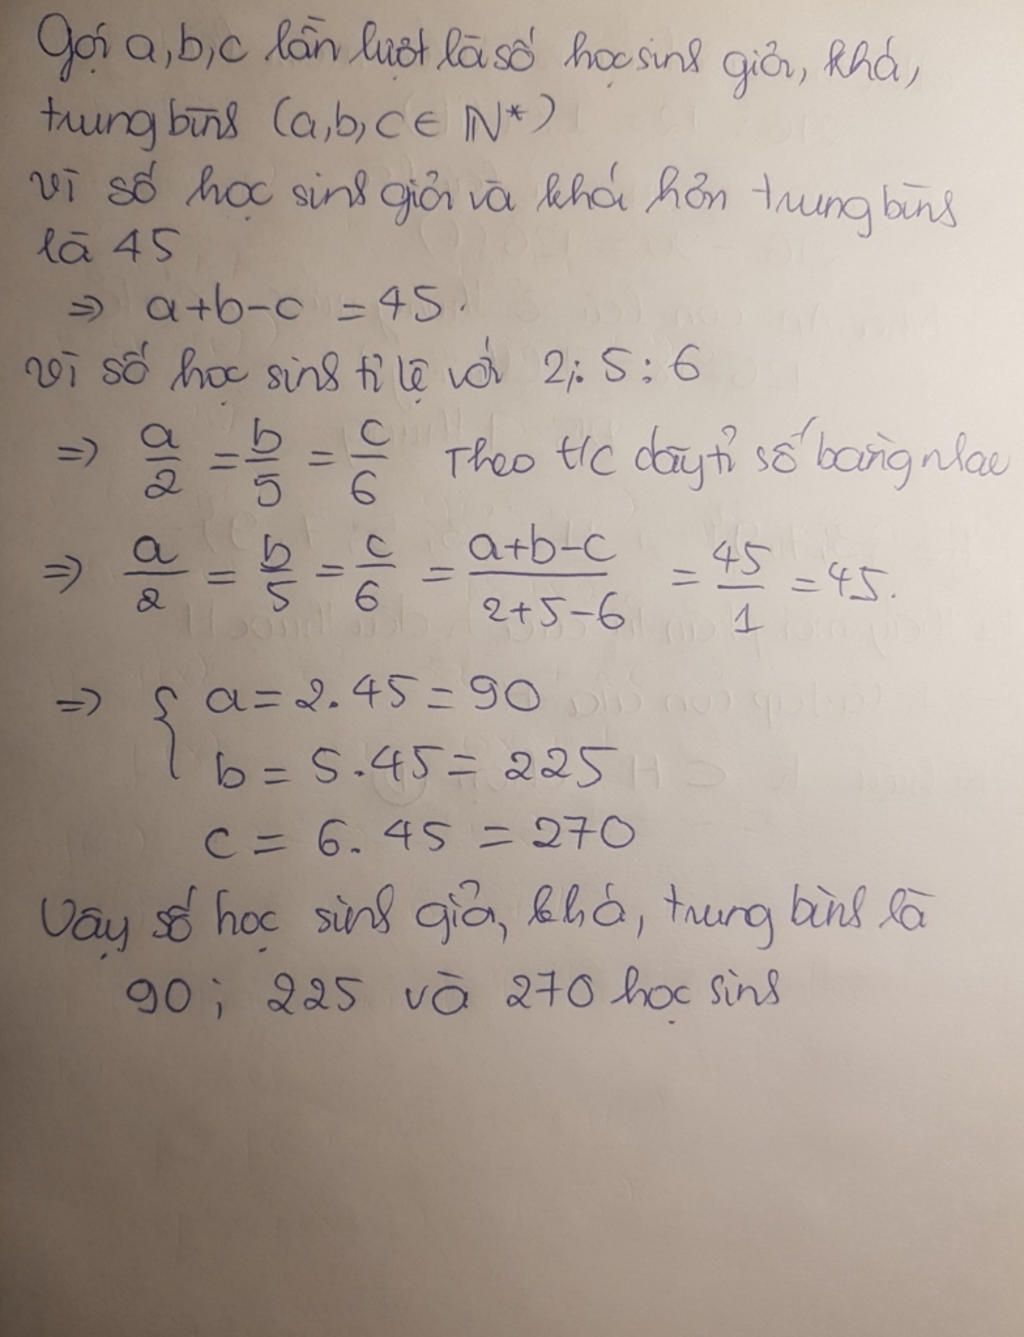 Gọi a,b,c lần lượt là số học sinh giỏi, khá,
trung bình (a,b,c ∈ N*)
vì số học sinh giỏi và khá hơn trung bình
là 45
⇒ a+b-c = 45.
vì số học sinh tỉ lệ với 2;: 5 : 6
⇒ a/2 = b/5 = c/6 Theo t/c dãy tỉ số bằng nhau
⇒ a/2 = b/5 = c/6 = (a+b-c)/(2+5-6) = 45/1 = 45.
⇒ { a = 2.45 = 90
b = 5.45 = 225
c = 6.45 = 270
Vậy số học sinh giỏi, khá, trung bình là
90; 225 và 270 học sinh